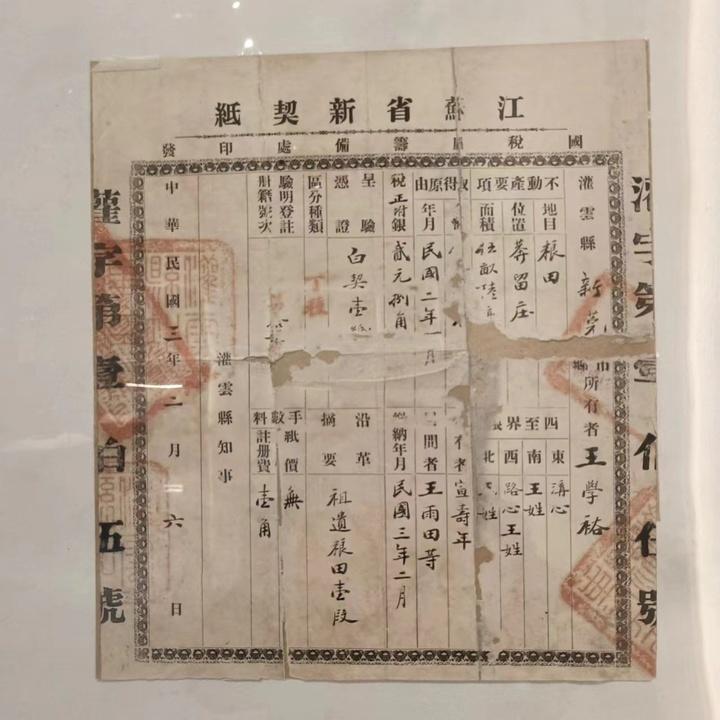 江蘇省新契紙
國稅籌備處印發
灌雲縣新
所有者王學裕
不動產要項
地目 粮田
位置 莽留庄
面積 伍畝陸
四至界
東 溝心
南 王姓
西 路心王姓
北 姓
得原由
年月 民國二年一月
宣壽年
間者 王雨田等
稅正附銀 貳元捌角
納年月 民國三年二月
呈驗憑證 白契壹
沿革摘要 祖遺粮田壹段
區分種類
驗明登註財籍號次
手數料
紙價 無
註册費 壹角
灌雲縣知事
中華民國三年二月六日
灌字第壹佰伍號